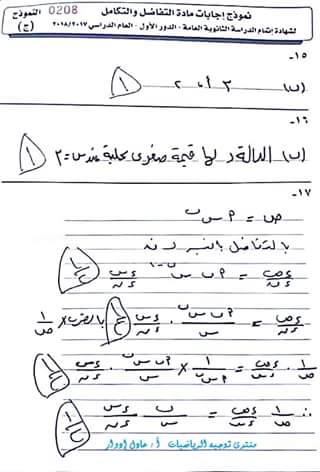 نموذج إجابات مادة التفاضل والتكامل
0208 النموذج
لشهادة إتمام الدراسة الثانوية العامة - الدور الأول - العام الدراسي ٢٠١٧/٢٠١٨ (ج)
١٥-
(ب) ٣ أ، ٢
١
١٦-
(ب) الدالة د لها قيمة صغرى محلية عند س = ٢
١
١٧-
ص = م س ^ن
بالتفاضل بالنسبة لـ ن
ءص/ءن = م ن س^(ن-١) ءس/ءن
ءص/ءن = م ن س^ن/س · ءس/ءن بالضرب × ١/ص
١/ص · ءص/ءن = ١/م س^ن × م ن س^ن/س · ءس/ءن
∴ ١/ص ءص/ءن = ن/س ءس/ءن
منتدى توجيه الرياضيات أ / عادل إدوار